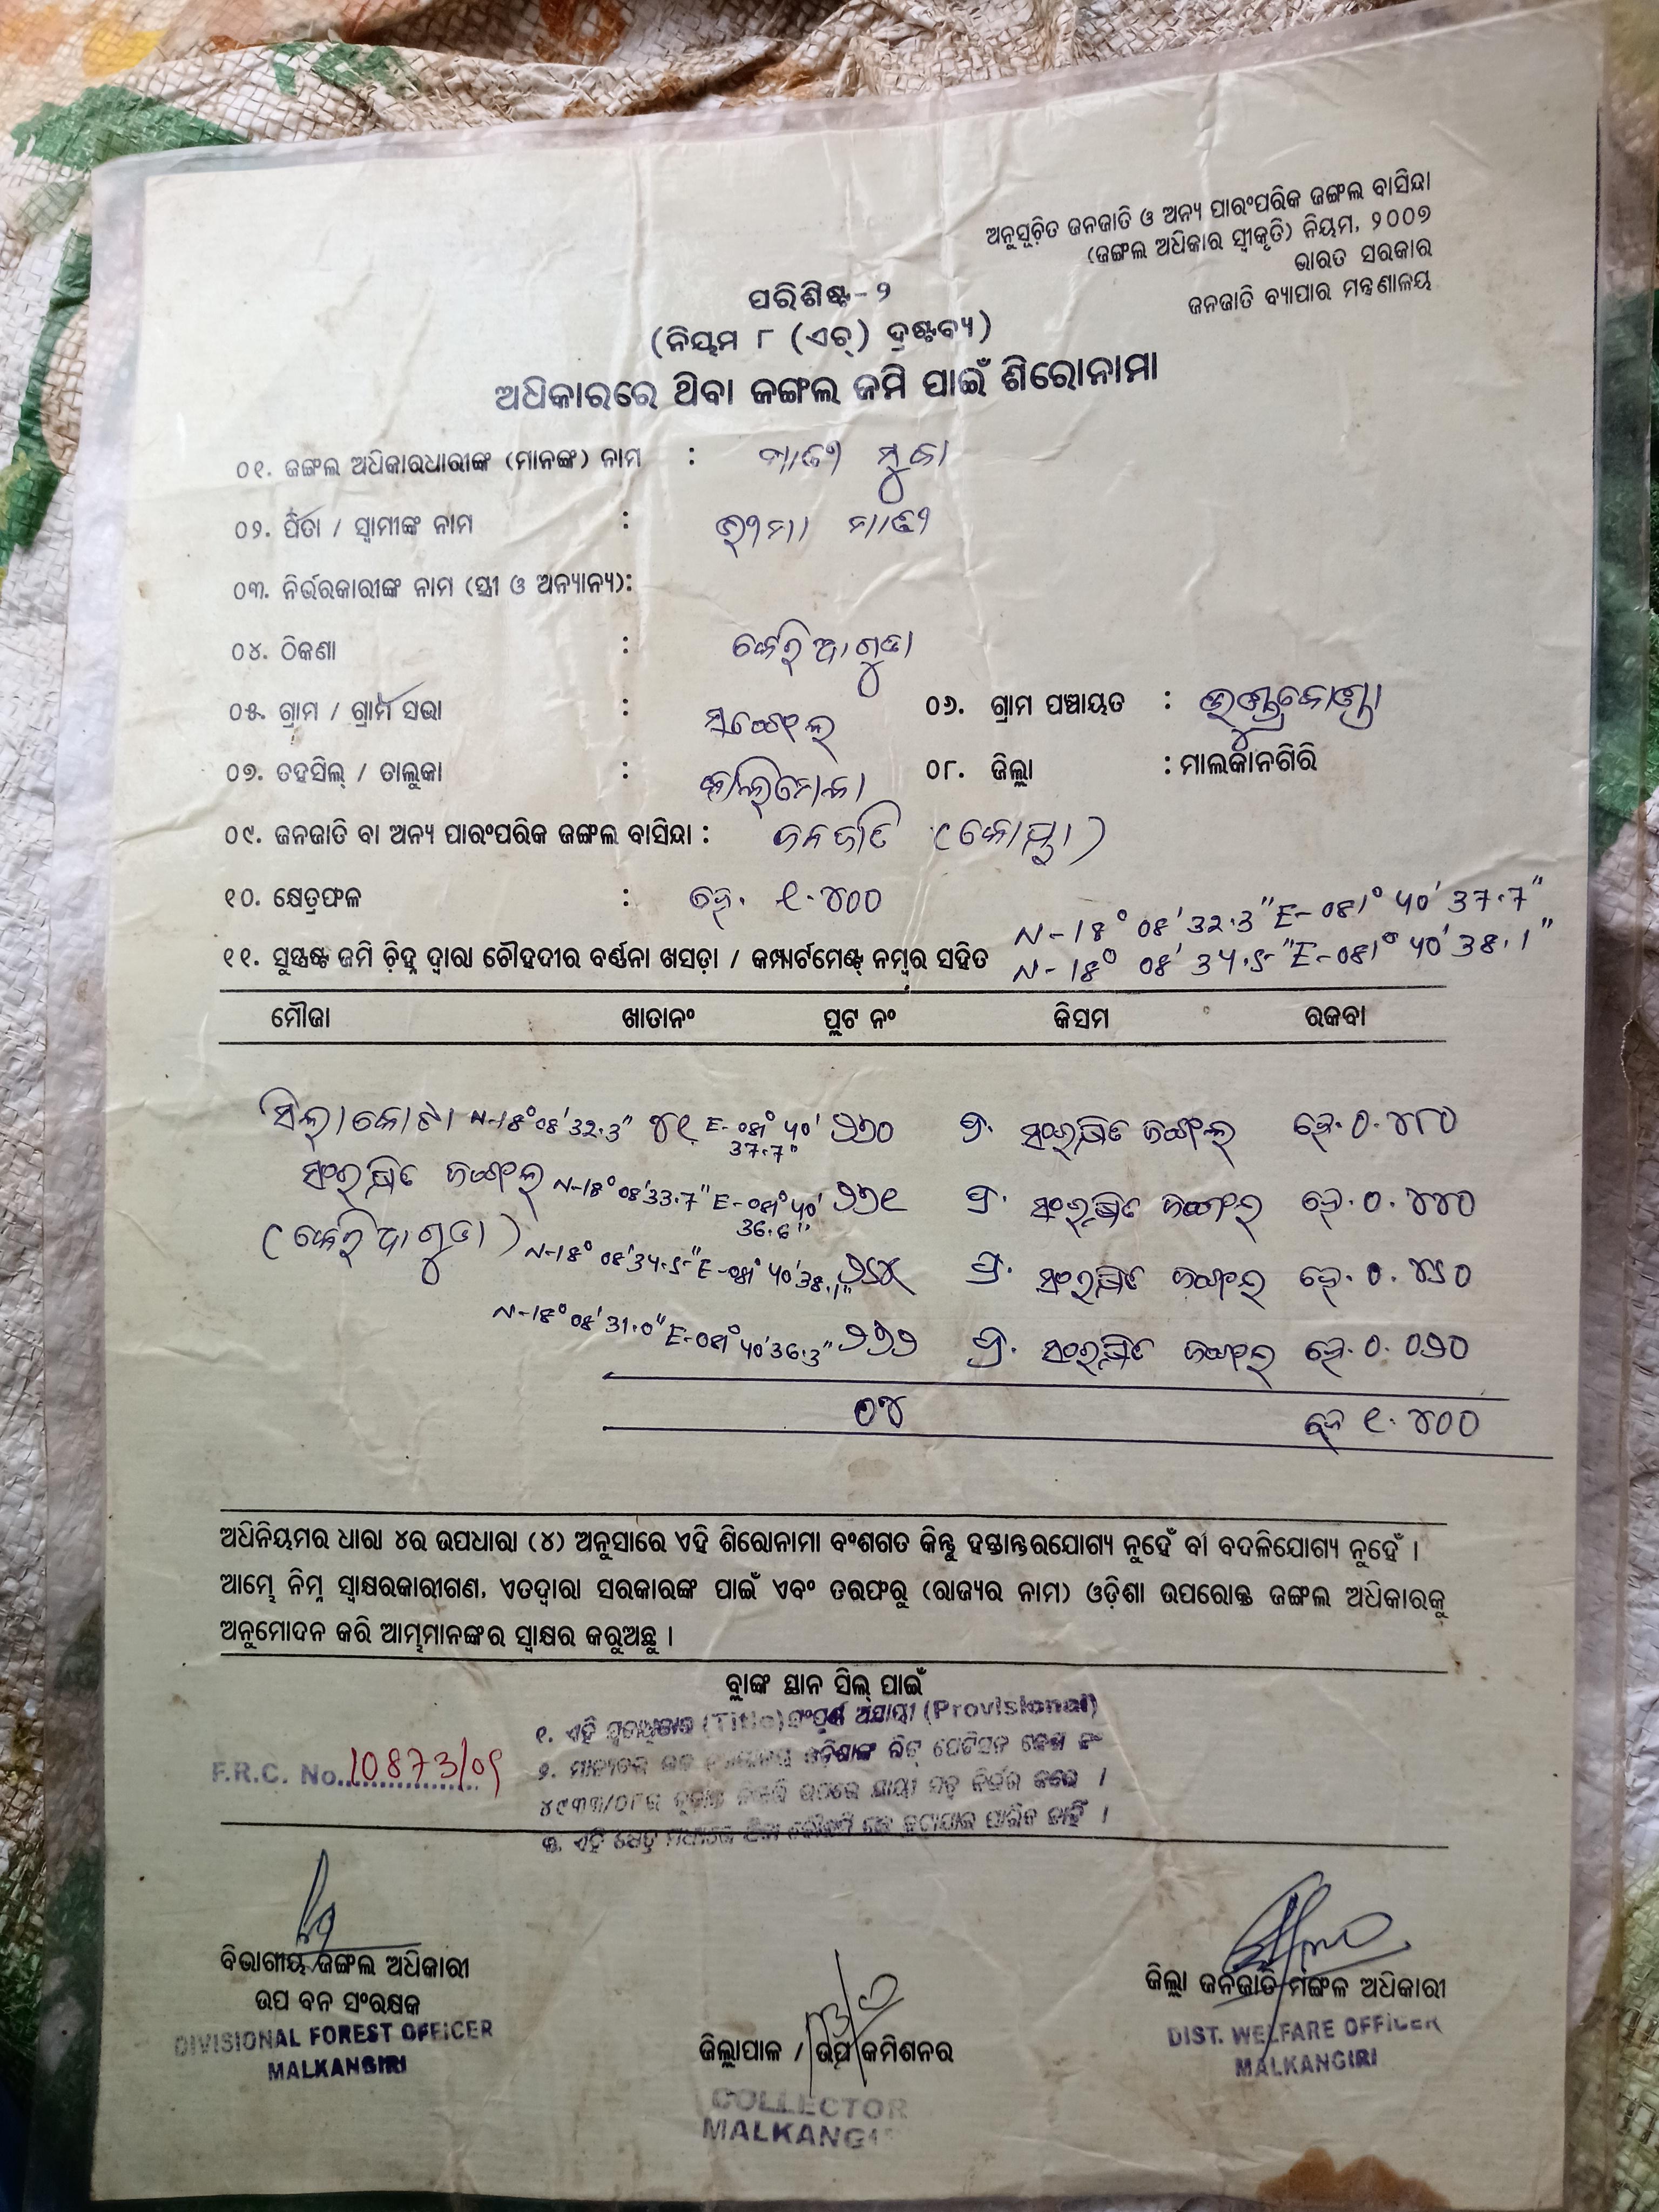 ଅନୁସୂଚିତ ଜନଜାତି ଓ ଅନ୍ୟ ପାରଂପରିକ ଜଙ୍ଗଲ ବାସିନ୍ଦା
(ଜଙ୍ଗଲ ଅଧିକାର ସ୍ୱୀକୃତି) ନିୟମ, ୨୦୦୭
ଭାରତ ସରକାର
ଜନଜାତି ବ୍ୟାପାର ମନ୍ତ୍ରଣାଳୟ
ପରିଶିଷ୍ଟ-୨
(ନିୟମ ୮ (ଏଚ୍) ଦ୍ରଷ୍ଟବ୍ୟ)
ଅଧିକାରରେ ଥିବା ଜଙ୍ଗଲ ଜମି ପାଇଁ ଶିରୋନାମା
୦୧. ଜଙ୍ଗଲ ଅଧିକାରଧାରୀଙ୍କ (ମାନଙ୍କ) ନାମ : ମାଡୀ ମୁକା
୦୨. ପିତା / ସ୍ୱାମୀଙ୍କ ନାମ : ଭୀମା ମାଡୀ
୦୩. ନିର୍ଭରକାରୀଙ୍କ ନାମ (ସ୍ତ୍ରୀ ଓ ଅନ୍ୟାନ୍ୟ):
୦୪. ଠିକଣା :
୦୫. ଗ୍ରାମ / ଗ୍ରାମ ସଭା : ୦୬. ଗ୍ରାମ ପଞ୍ଚାୟତ :
୦୭. ତହସିଲ୍ / ତାଲୁକା : କାଲିମେଳା ୦୮. ଜିଲ୍ଲା : ମାଲକାନଗିରି
୦୯. ଜନଜାତି ବା ଅନ୍ୟ ପାରଂପରିକ ଜଙ୍ଗଲ ବାସିନ୍ଦା : ଜନଜାତି (କୋୟା)
୧୦. କ୍ଷେତ୍ରଫଳ : ହେ. ୧.୪୦୦
N-18° 08' 32.3" E-081° 40' 37.7"
୧୧. ସୁସ୍ପଷ୍ଟ ଜମି ଚିହ୍ନ ଦ୍ୱାରା ଚୌହଦୀର ବର୍ଣ୍ଣନା ଖସଡ଼ା / କମ୍ପାର୍ଟମେଣ୍ଟ ନମ୍ବର ସହିତ N-18° 08' 34.5" E-081° 40' 38.1"
ମୌଜା ଖାତାନଂ ପ୍ଲଟ ନଂ କିସମ ରକବା
ସିଲାକୋଟା N-18° 08' 32.3" ୪୧ E-081° 40' 37.7" ୨୨୦ ପ୍ର. ସଂରକ୍ଷିତ ଜଙ୍ଗଲ ହେ.୦.୪୮୦
ସଂରକ୍ଷିତ ଜଙ୍ଗଲ N-18° 08' 33.7" E-081° 40' 36.6" ୨୨୧ ପ୍ର. ସଂରକ୍ଷିତ ଜଙ୍ଗଲ ହେ.୦.୪୪୦
N-18° 08' 34.5" E-081° 40' 38.1" ପ୍ର. ସଂରକ୍ଷିତ ଜଙ୍ଗଲ ହେ.୦.୪୬୦
N-18° 08' 31.0" E-081° 40' 36.3" ୨୨୨ ପ୍ର. ସଂରକ୍ଷିତ ଜଙ୍ଗଲ ହେ.୦.୦୨୦
୦୪ ହେ ୧.୪୦୦
ଅଧିନିୟମର ଧାରା ୪ର ଉପଧାରା (୪) ଅନୁସାରେ ଏହି ଶିରୋନାମା ବଂଶଗତ କିନ୍ତୁ ହସ୍ତାନ୍ତରଯୋଗ୍ୟ ନୁହେଁ ବା ବଦଳିଯୋଗ୍ୟ ନୁହେଁ ।
ଆମ୍ଭେ ନିମ୍ନ ସ୍ୱାକ୍ଷରକାରୀଗଣ, ଏତଦ୍ୱାରା ସରକାରଙ୍କ ପାଇଁ ଏବଂ ତରଫରୁ (ରାଜ୍ୟର ନାମ) ଓଡ଼ିଶା ଉପରୋକ୍ତ ଜଙ୍ଗଲ ଅଧିକାରକୁ
ଅନୁମୋଦନ କରି ଆମ୍ଭମାନଙ୍କର ସ୍ୱାକ୍ଷର କରୁଅଛୁ ।
ବ୍ଲାଙ୍କ ସ୍ଥାନ ସିଲ୍ ପାଇଁ
୧. ଏହି (Title) ସଂପୂର୍ଣ୍ଣ ଅସ୍ଥାୟୀ (Provisional)
F.R.C. No. 10873/09
୨. ଓଡ଼ିଶାଙ୍କ ରିଟ୍ ପେଟିସନ କେଶ ନଂ
୪୯୩୩/୦୮ର ନିର୍ଭର କରେ ।
୩. ଏହି ନାହିଁ ।
ବିଭାଗୀୟ ଜଙ୍ଗଲ ଅଧିକାରୀ
ଉପ ବନ ସଂରକ୍ଷକ
DIVISIONAL FOREST OFFICER
MALKANGIRI
ଜିଲ୍ଲାପାଳ / ଉପ କମିଶନର
COLLECTOR
MALKANGI
ଜିଲ୍ଲା ଜନଜାତି ମଙ୍ଗଳ ଅଧିକାରୀ
DIST. WELFARE OFFICER
MALKANGIRI